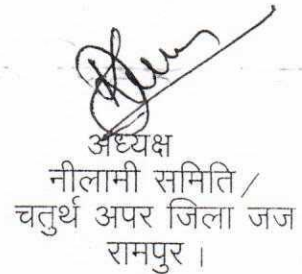 अध्यक्ष
नीलामी समिति /
चतुर्थ अपर जिला जज
रामपुर ।